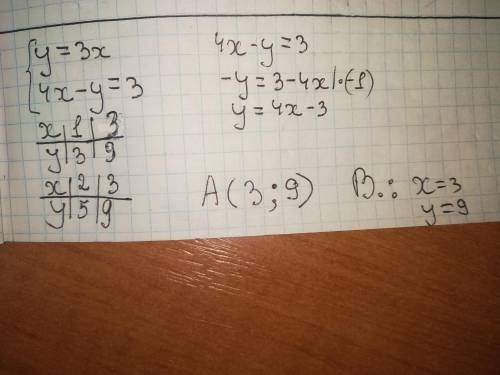 { y = 3x
4x - y = 3
x | 1 | 3
y | 3 | 9
x | 2 | 3
y | 5 | 9
4x - y = 3
-y = 3 - 4x | · (-1)
y = 4x - 3
A (3 ; 9)
B.: x = 3
y = 9